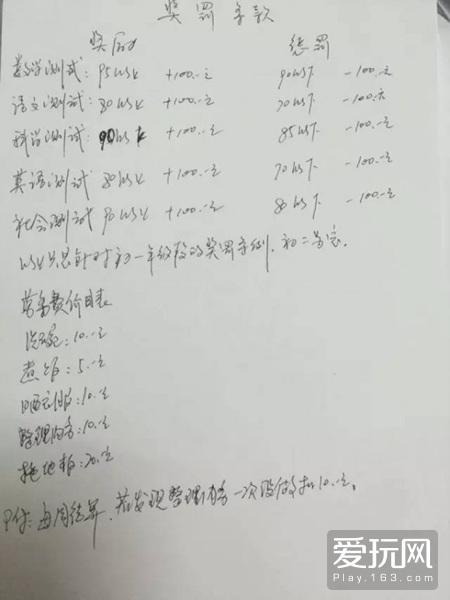 奖罚条款
奖励 惩罚
数学测试: 95以上 +100.-元 90以下 -100.元
语文测试: 80以上 +100.-元 70以下 -100.元
科学测试: 90以上 +100.-元 85以下 -100.-元
英语测试: 80以上 +100.-元 70以下 -100.-元
社会测试 90以上 +100.-元 80以下 -100.-元
以上只是针对初一年级段的奖罚条例.初二另定.
劳务费价目表
洗碗: 10.-元
煮饭: 5.-元
晒衣服: 10.-元
整理内务: 10.-元
拖地板: 20.元
每周结算,若发现整理内务一次没做扣10.元。
爱玩网
Play.163.com